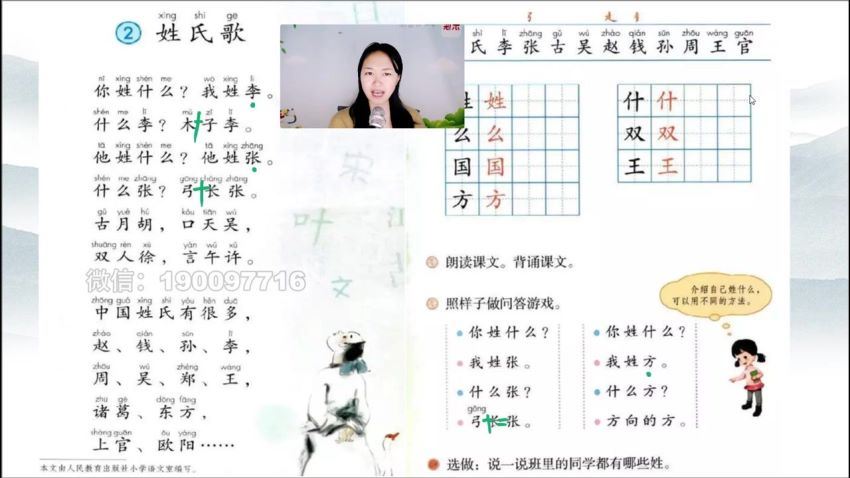 xìng shì gē
2 姓氏歌
nǐ xìng shén me wǒ xìng lǐ
你姓什么？我姓李。
shén me lǐ mù zǐ lǐ
什么李？木子李。
tā xìng shén me tā xìng zhāng
他姓什么？他姓张。
shén me zhāng gōng cháng zhāng
什么张？弓长张。
gǔ yuè hú kǒu tiān wú
古月胡，口天吴，
shuāng rén xú yán wǔ xǔ
双人徐，言午许。
微信：190097716
zhōng guó xìng shì yǒu hěn duō
中国姓氏有很多，
zhào qián sūn lǐ
赵、钱、孙、李，
zhōu wú zhèng wáng
周、吴、郑、王，
zhū gě dōng fāng
诸葛、东方，
shàng guān ōu yáng
上官、欧阳……
本文由人民教育出版社小学语文室编写。
宋
叶
江
文
shì lǐ zhāng gǔ wú zhào qián sūn zhōu wáng guān
氏李张古吴赵钱孙周王官
姓姓
么么
国国
方方
什什
双双
王王
朗读课文。背诵课文。
照样子做问答游戏。
你姓什么？
我姓张。
什么张？
gōng
弓长张。
你姓什么？
我姓方。
什么方？
方向的方。
介绍自己姓什么，
可以用不同的方法。
选做：说一说班里的同学都有哪些姓。